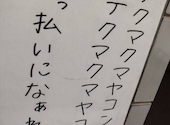 クマクマヤコン
テクマクマヤコ
っ払いになぁれ